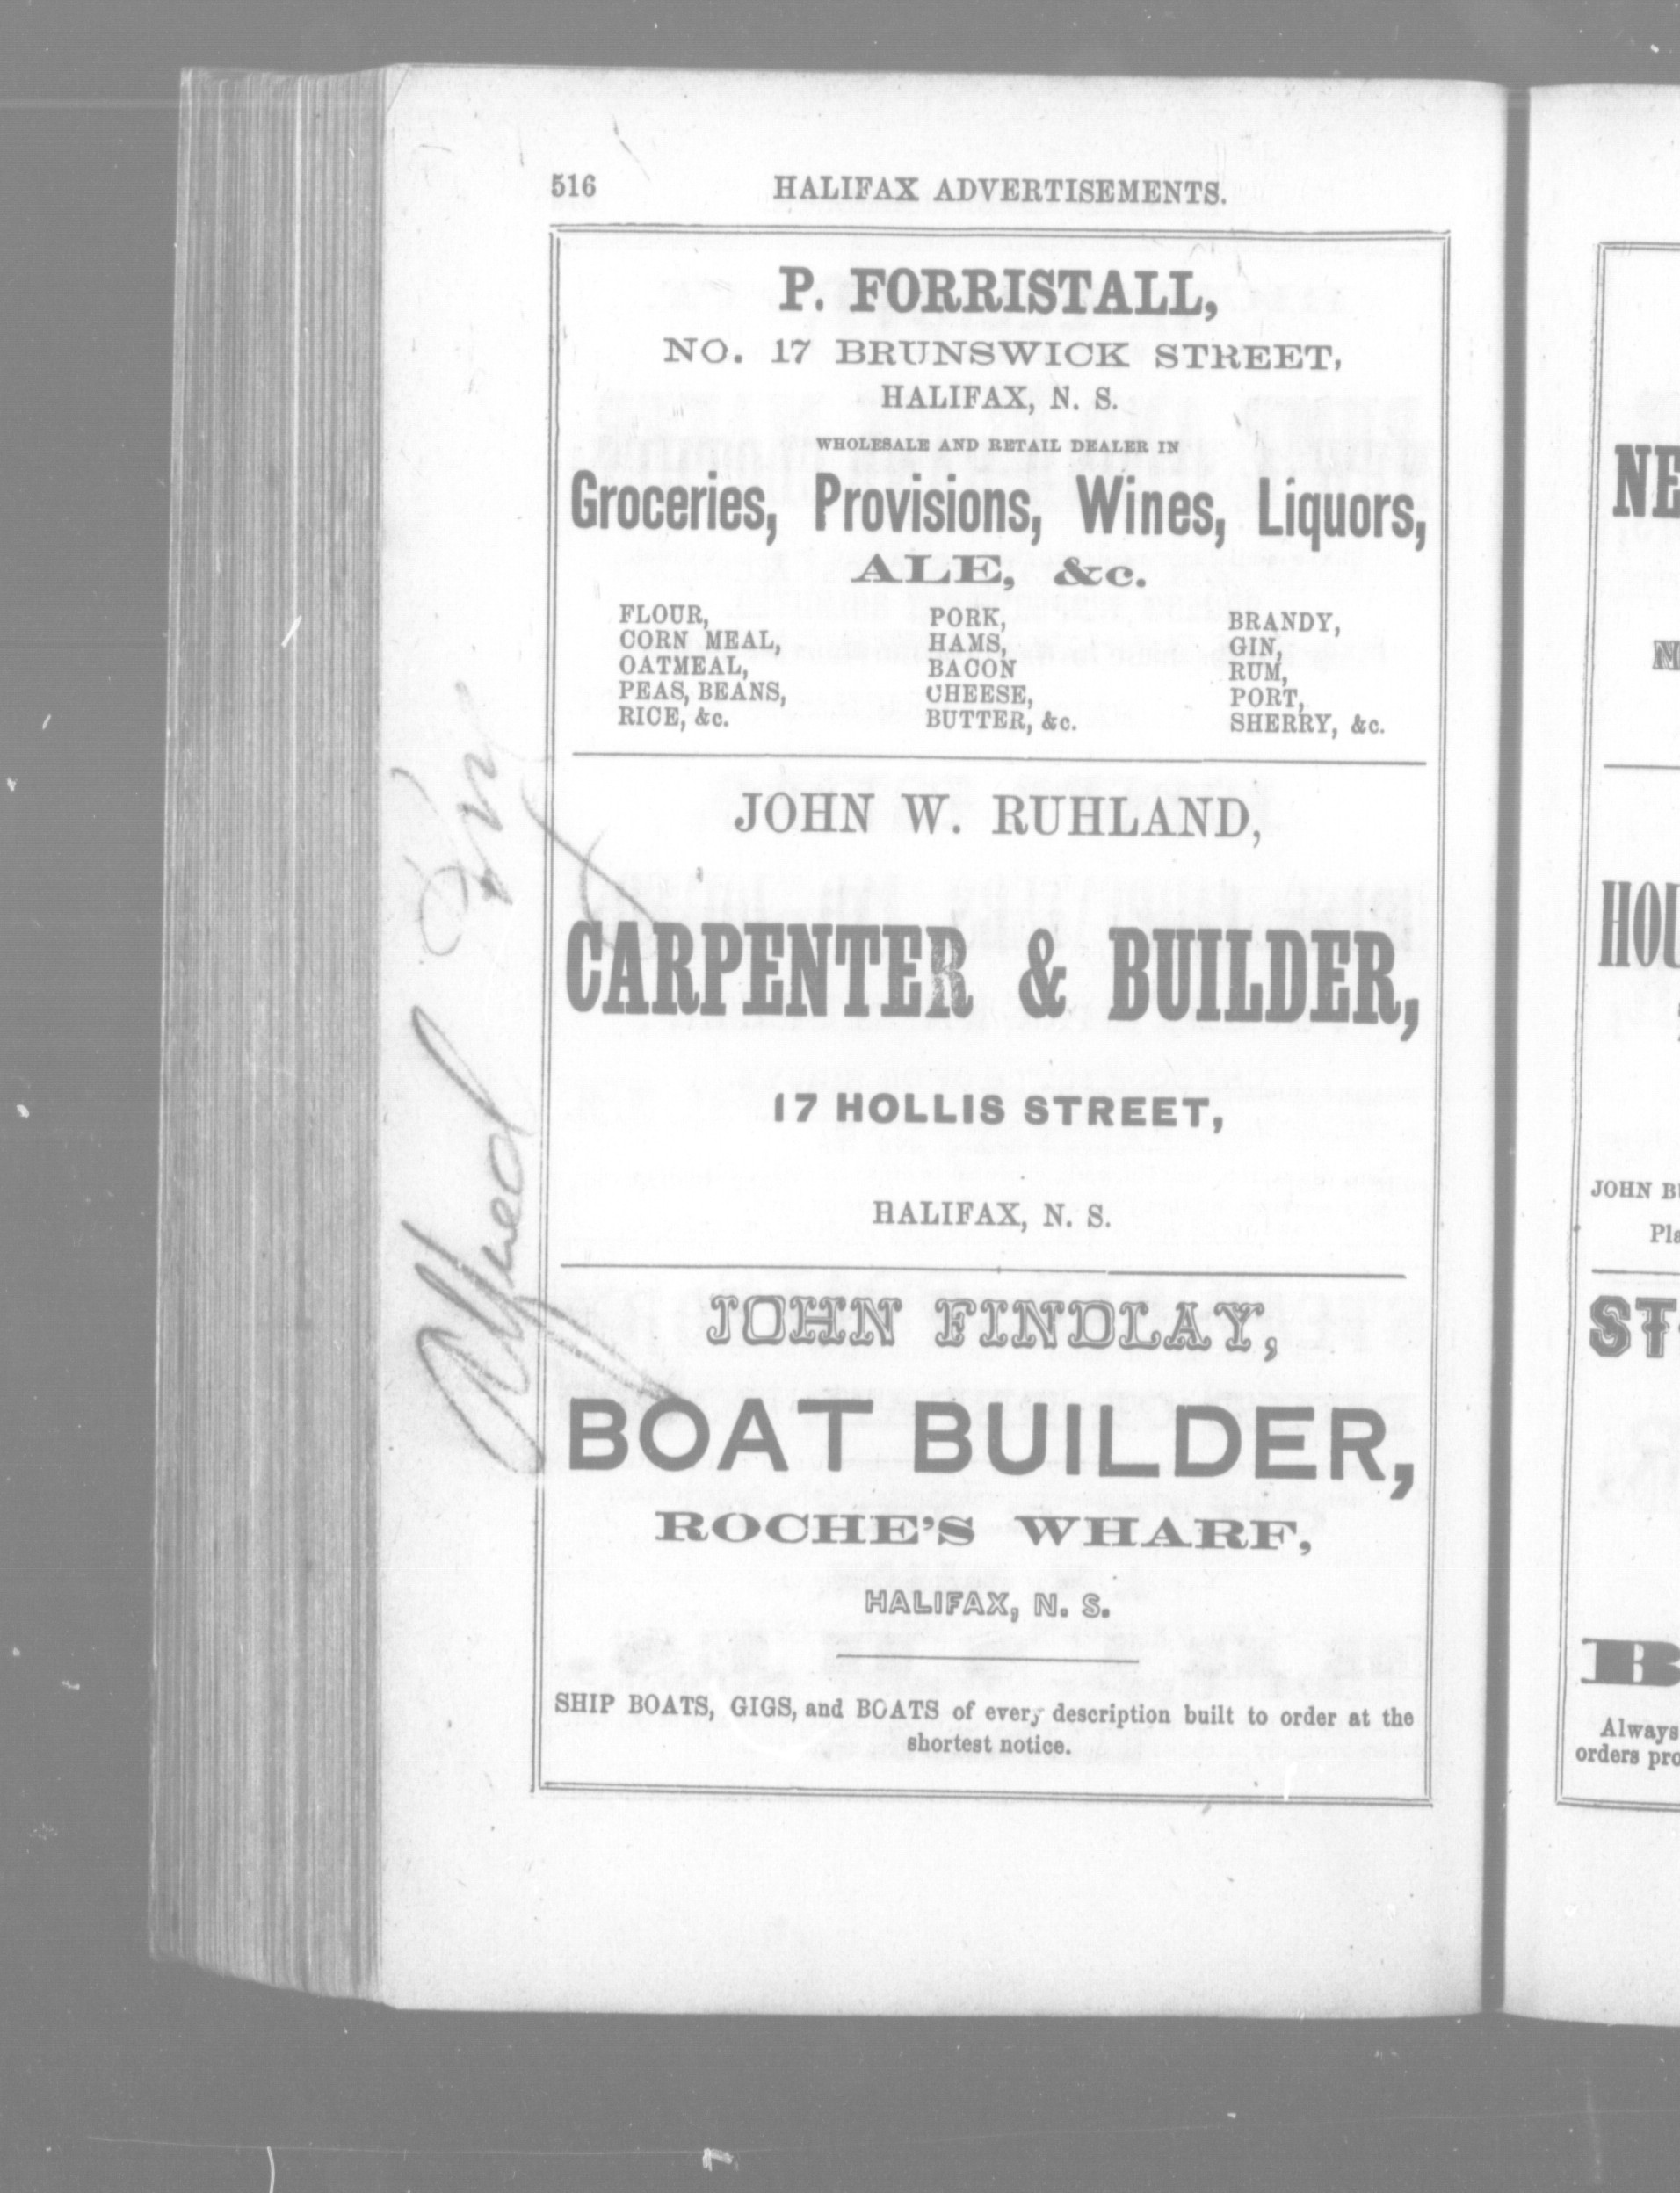 516 HALIFAX ADVERTISEMENTS.
P. FORRISTALL,
NO. 17 BRUNSWICK STREET,
HALIFAX, N. S.
WHOLESALE AND RETAIL DEALER IN
Groceries, Provisions, Wines, Liquors,
ALE, &c.
FLOUR, PORK, BRANDY,
CORN MEAL, HAMS, GIN,
OATMEAL, BACON RUM,
PEAS, BEANS, CHEESE, PORT,
RICE, &c. BUTTER, &c. SHERRY, &c.
JOHN W. RUHLAND,
CARPENTER & BUILDER,
17 HOLLIS STREET,
HALIFAX, N. S.
JOHN FINDLAY,
BOAT BUILDER,
ROCHE'S WHARF,
HALIFAX, N. S.
SHIP BOATS, GIGS, and BOATS of every description built to order at the
shortest notice.
Alfred
NE
HOU
JOHN B
Pla
ST
B
Always
orders pro